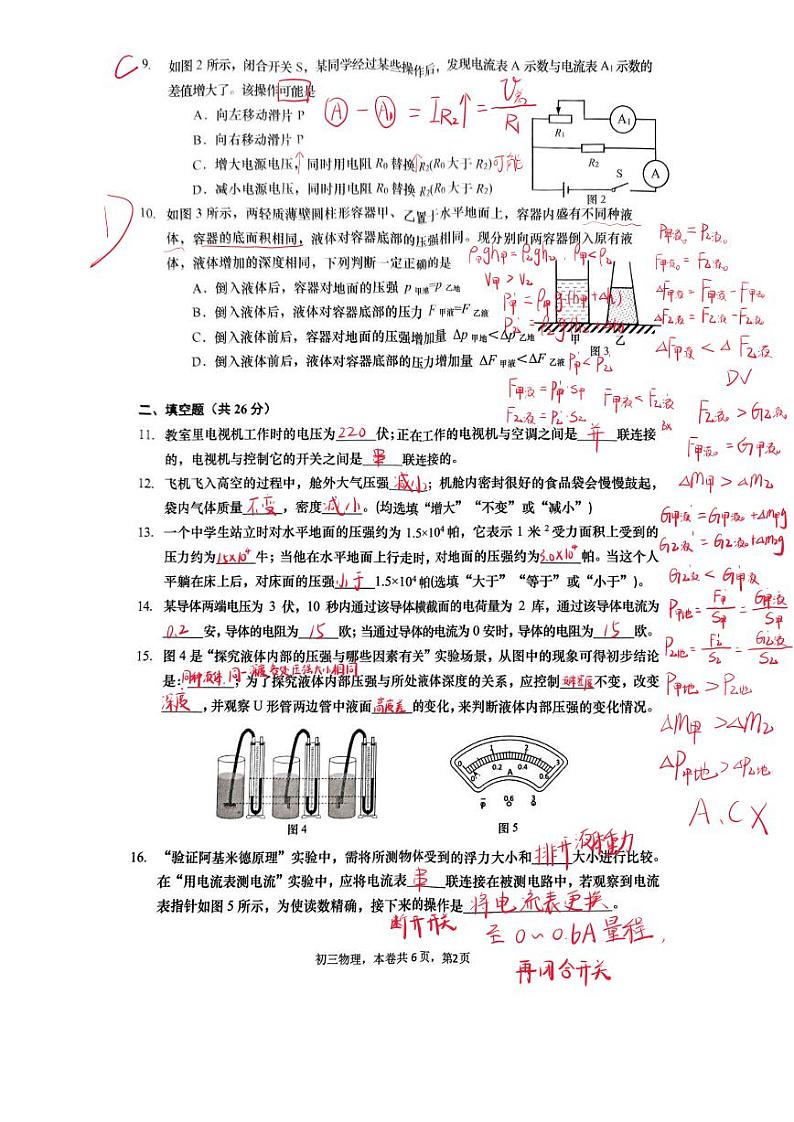 C 9. 如图 2 所示，闭合开关 S，某同学经过某些操作后，发现电流表 A 示数与电流表 A₁ 示数的
差值增大了。该操作可能是
Ⓐ - Ⓐ₁ = I_R₂↑ = U总/R₁
A．向左移动滑片 P
B．向右移动滑片 P
C．增大电源电压，同时用电阻 R₀ 替换 R₂(R₀ 大于 R₂) 可能
D．减小电源电压，同时用电阻 R₀ 替换 R₂(R₀ 大于 R₂)
R₁ A₁
R₂
S A
图 2
D 10. 如图 3 所示，两轻质薄壁圆柱形容器甲、乙置于水平地面上，容器内盛有不同种液
体，容器的底面积相同，液体对容器底部的压强相同。现分别向两容器倒入原有液
体，液体增加的深度相同，下列判断一定正确的是
A．倒入液体后，容器对地面的压强 p甲地=p乙地
B．倒入液体后，液体对容器底部的压力 F甲液=F乙液
C．倒入液体前后，容器对地面的压强增加量 Δp甲地<Δp乙地
D．倒入液体前后，液体对容器底部的压力增加量 ΔF甲液<ΔF乙液
甲 乙
图 3
P甲液₀=P乙液₀
F甲液₀=F乙液₀
ΔF甲液=F甲液-F甲液₀
ΔF乙液=F乙液-F乙液₀
ΔF甲液<ΔF乙液
D√
F甲液=P甲'·S甲
F乙液=P乙'·S乙
F甲液<F乙液
B×
ΔM甲>ΔM乙
G甲液'=G甲液₀+ΔM甲g
G乙液'=G乙液₀+ΔM乙g
G乙液<G甲液
P甲地=F甲'/S甲=G甲液'/S甲
P乙地=F乙'/S乙=G乙液'/S乙
P甲地>P乙地
ΔM甲>ΔM乙
ΔP甲地>ΔP乙地
A、C×
二、填空题（共 26 分）
11. 教室里电视机工作时的电压为220伏；正在工作的电视机与空调之间是 并 联连接
的，电视机与控制它的开关之间是 串 联连接的。
12. 飞机飞入高空的过程中，舱外大气压强 减小 ；机舱内密封很好的食品袋会慢慢鼓起，
袋内气体质量 不变 ，密度 减小 。(均选填“增大”“不变”或“减小”)
13. 一个中学生站立时对水平地面的压强约为 1.5×10⁴ 帕，它表示 1 米² 受力面积上受到的
压力约为1.5×10⁴牛；当他在水平地面上行走时，对地面的压强约为3.0×10⁴帕。当这个人
平躺在床上后，对床面的压强 小于 1.5×10⁴ 帕(选填“大于”“等于”或“小于”)。
14. 某导体两端电压为 3 伏，10 秒内通过该导体横截面的电荷量为 2 库，通过该导体电流为
0.2 安，导体的电阻为 15 欧；当通过导体的电流为 0 安时，导体的电阻为 15 欧。
15. 图 4 是“探究液体内部的压强与哪些因素有关”实验场景，从图中的现象可得初步结论
是：同种液体，同一深度各处压强大小相同；为了探究液体内部压强与所处液体深度的关系，应控制 液体密度 不变，改变
深度 ，并观察 U 形管两边管中液面 高度差 的变化，来判断液体内部压强的变化情况。
图 4
0 1 2 3
0 0.2 0.4 0.6
A
- 0.6 3
图 5
16. “验证阿基米德原理”实验中，需将所测物体受到的浮力大小和 排开液体重力 大小进行比较。
在“用电流表测电流”实验中，应将电流表 串 联连接在被测电路中，若观察到电流
表指针如图 5 所示，为使读数精确，接下来的操作是 将电流表更换 。
断开开关 至 0~0.6A 量程，
再闭合开关
初三物理，本卷共 6 页，第2页